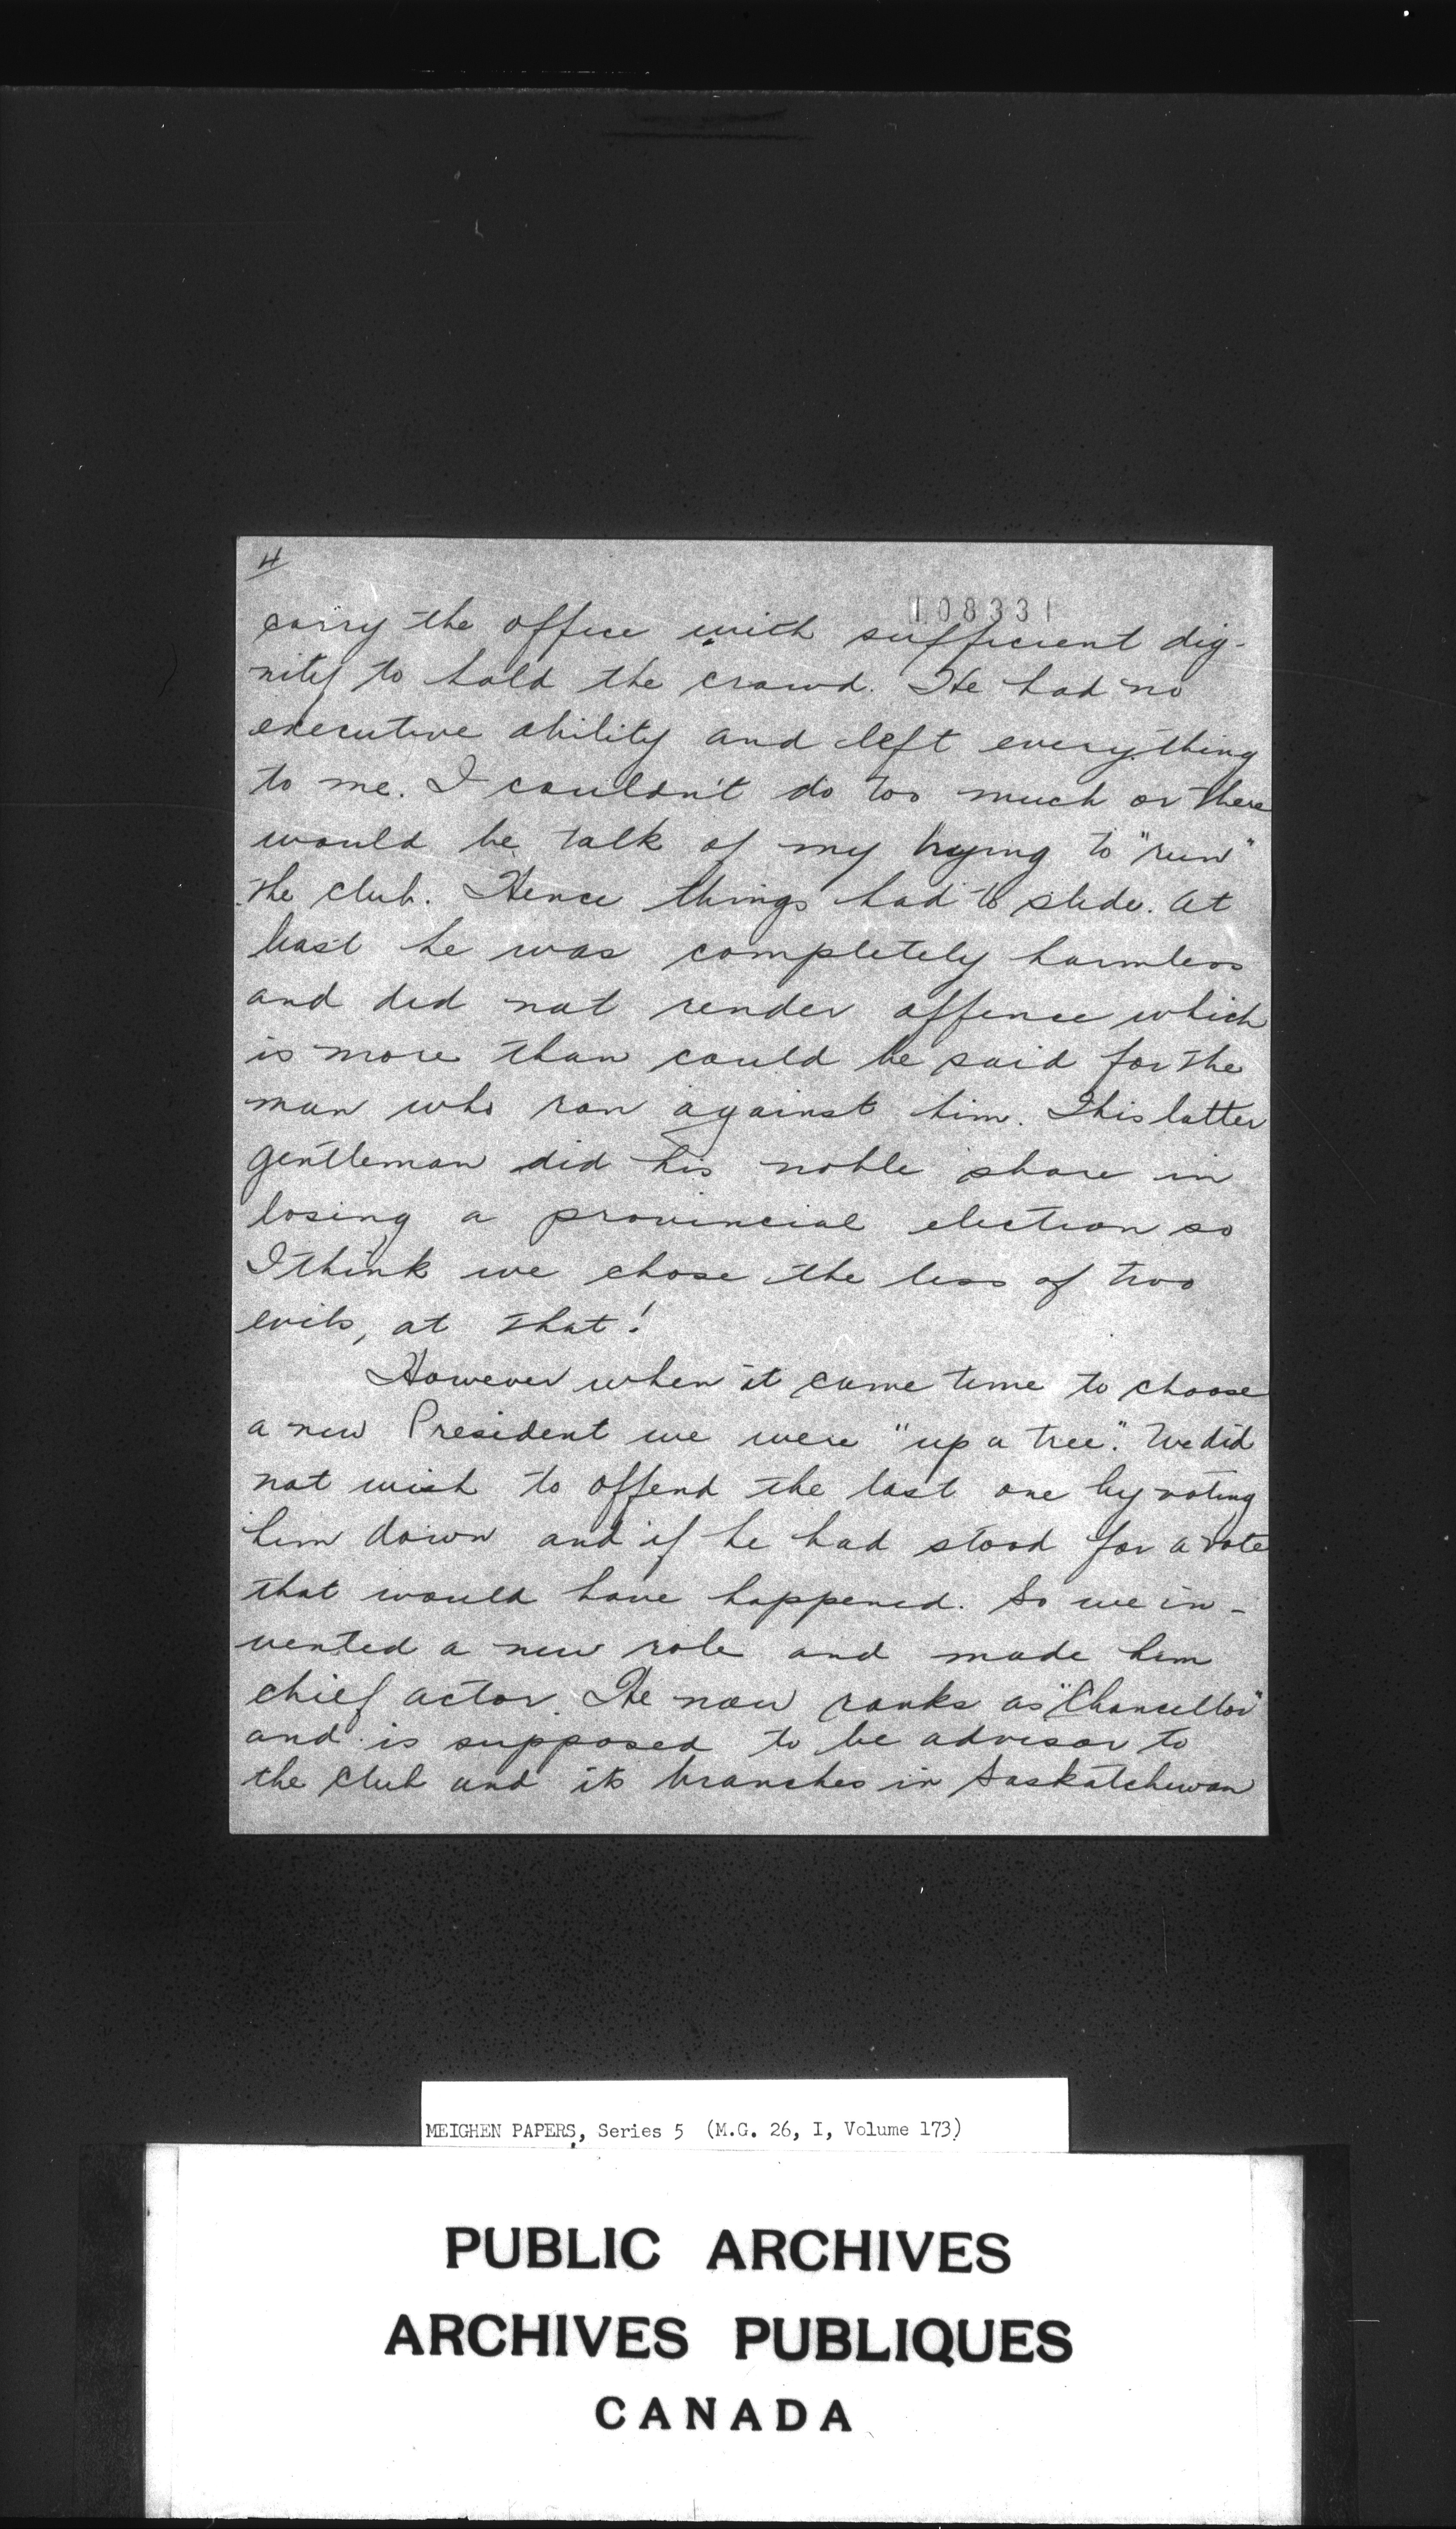 4
108331
carry the office with sufficient dig-
nity to hold the crowd. He had no
executive ability and left everything
to me. I couldn't do too much or there
would be talk of my trying to "run"
the club. Hence things had to slide. At
least he was completely harmless
and did not render offence which
is more than could be said for the
man who ran against him. This latter
gentleman did his noble share in
losing a provincial election so
I think we chose the less of two
evils, at that!
However when it came time to choose
a new President we were "up a tree". We did
not wish to offend the last one by voting
him down and if he had stood for a vote
that would have happened. So we in-
vented a new role and made him
chief actor. He now ranks as "Chancellor"
and is supposed to be advisor to
the club and its branches in Saskatchewan
MEIGHEN PAPERS, Series 5 (M.G. 26, I, Volume 173)
PUBLIC ARCHIVES
ARCHIVES PUBLIQUES
CANADA